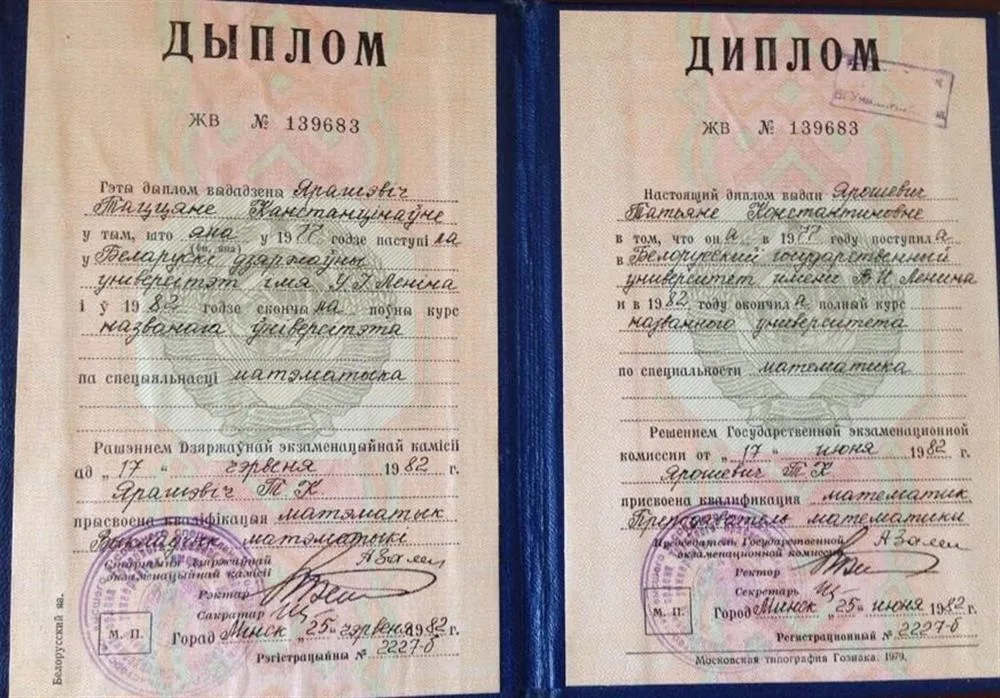 ДЫПЛОМ
ЖВ № 139683
Гэты дыплом выдадзены Ярашэвіч
Таццяне Канстанцінаўне
у тым, што яна у 1977 годзе паступіла
(ён, яна)
у Беларускі дзяржаўны
універсітэт імя У. І. Леніна
і ў 1982 годзе скончыла поўны курс
названага ўніверсітэта
па спецыяльнасці матэматыка
Рашэннем Дзяржаўнай экзаменацыйнай камісіі
ад „17“ чэрвеня 1982 г.
Ярашэвіч Т. К.
прысвоена кваліфікацыя матэматык
Выкладчык матэматыкі
Старшыня Дзяржаўнай
экзаменацыйнай камісіі
Рэктар
Сакратар
М. П.
Горад Мінск „25“ чэрвеня 1982 г.
Рэгістрацыйны № 2227-б
Белорусский яз.
ДИПЛОМ
ЖВ № 139683
Настоящий диплом выдан Ярошевич
Татьяне Константиновне
в том, что она в 1977 году поступила
в Белорусский государственный
университет имени В. И. Ленина
и в 1982 году окончила полный курс
названного университета
по специальности математика
Решением Государственной экзаменационной
комиссии от „17“ июня 1982 г.
Ярошевич Т. К.
присвоена квалификация математик.
Преподаватель математики
Председатель Государственной
экзаменационной комиссии
Ректор
Секретарь
М. П.
Город Минск „25“ июня 1982
Регистрационный № 2227-б
Московская типография Гознака. 1979.